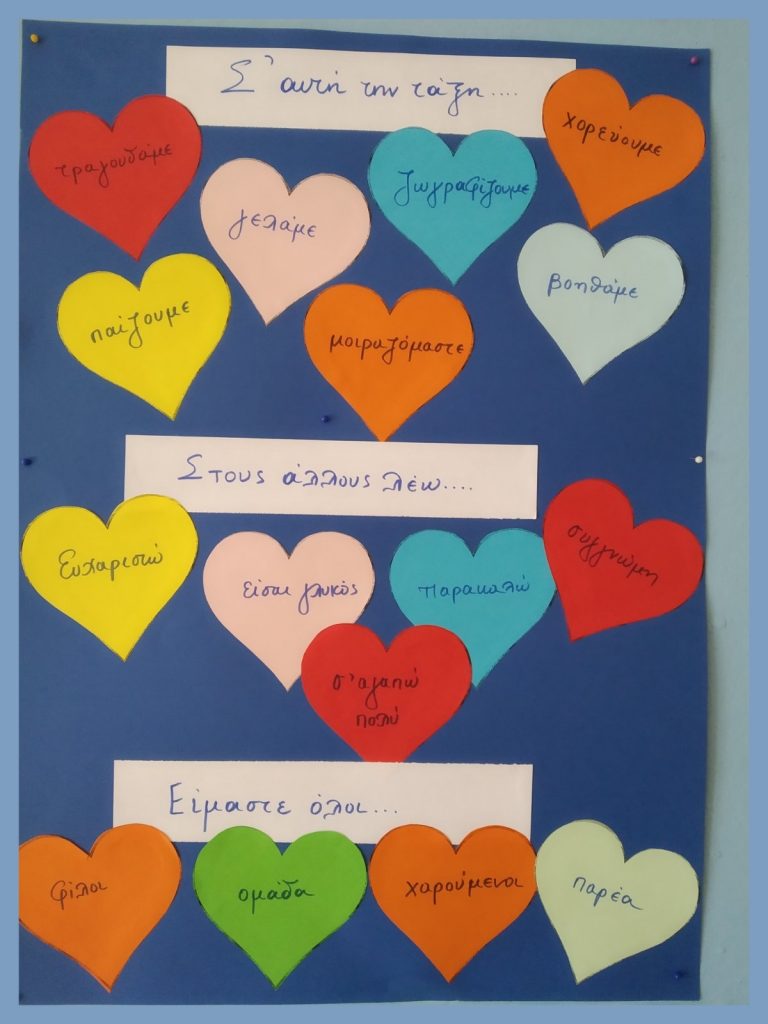 Σ' αυτή την τάξη....
τραγουδάμε
γελάμε
ζωγραφίζουμε
χορεύουμε
παίζουμε
μοιραζόμαστε
βοηθάμε
Στους άλλους λέω....
Ευχαριστώ
είσαι γλυκός
παρακαλώ
συγγνώμη
σ'αγαπώ
πολύ
Είμαστε όλοι...
φίλοι
ομάδα
χαρούμενοι
παρέα